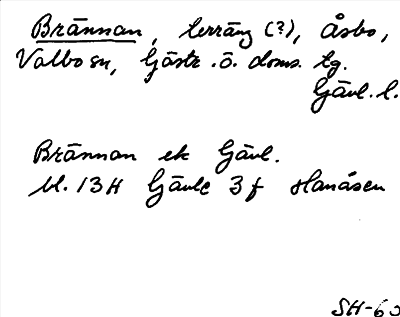 Brännan, terräng (?), Åsbo,
Valbo sn, Gästr. ö. doms. tg.
Gävl. l.
Brännan ek Gävl.
bl. 13H Gävle 3f Hanåsen
SH-63